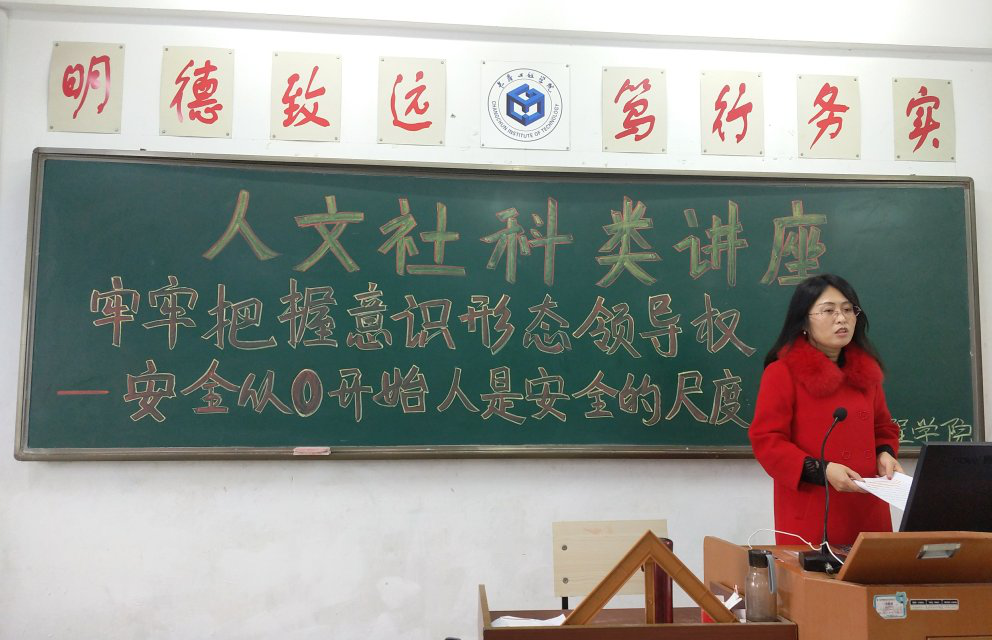 明德致远 笃行务实
长春工程学院
CHANGCHUN INSTITUTE OF TECHNOLOGY
人文社科类讲座
牢牢把握意识形态领导权
—安全从0开始人是安全的尺度
程学院